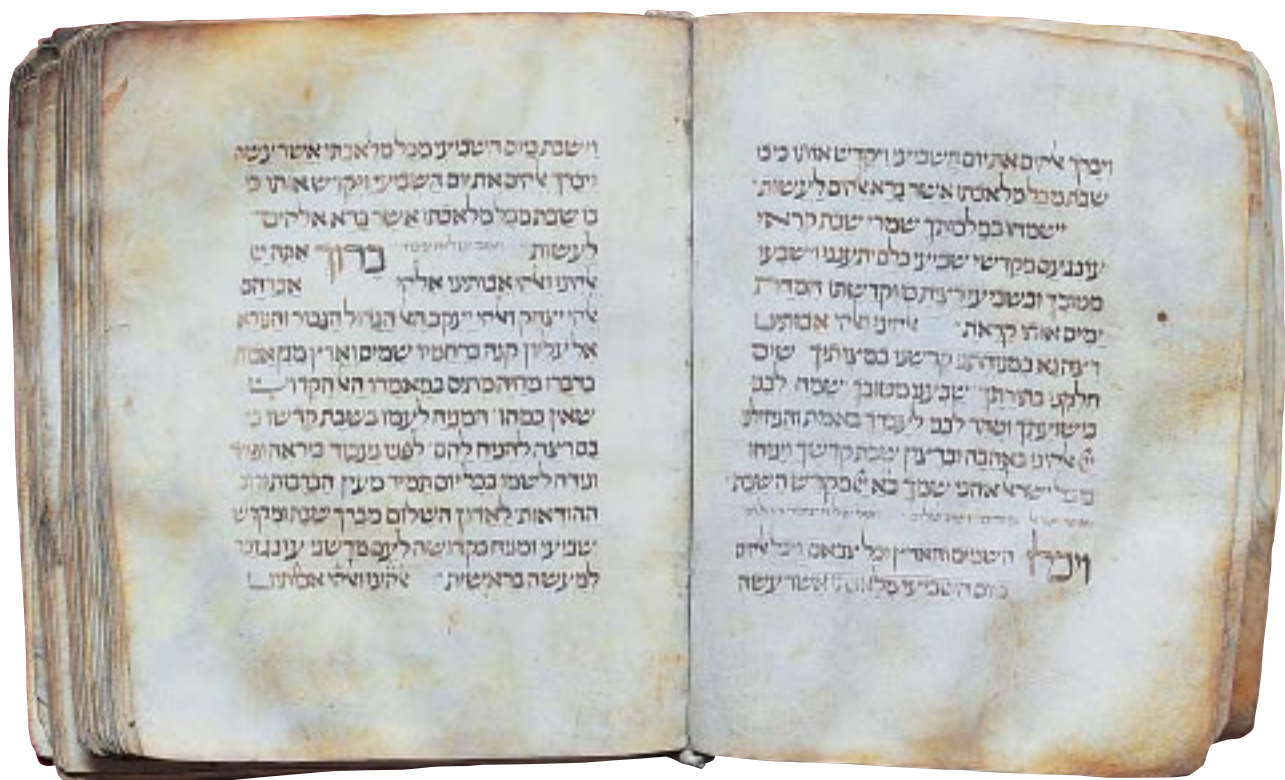 ויברך אלהים את יום השביעי ויקדש אותו כי בו
שבת מכל מלאכתו אשר ברא אלהים לעשות
ישמחו במלכותך שומרי שבת קוראי
עונג עם מקדשי שביעי כלם יתענגו וישבעו
מטובך ובשביעי רצית בו וקדשתו חמדת
ימים אותו קראת אלהינו ואלהי אבותינו
רצה נא במנוחתנו קדשנו במצותיך שים
חלקנו בתורתך שבענו מטובך שמח לבנו
בישועתך וטהר לבנו לעבדך באמת והנחילנו
אלהינו באהבה וברצון שבת קדשך וינוחו
בה כל ישראל אוהבי שמך בא מקדש השבת
ויכלו השמים והארץ וכל צבאם ויכל אלהים
ביום השביעי מלאכתו אשר עשה
וישבת ביום השביעי מכל מלאכתו אשר עשה
ויברך אלהים את יום השביעי ויקדש אותו כי
בו שבת מכל מלאכתו אשר ברא אלהים
לעשות ברוך אתה יי
אלהינו ואלהי אבותינו אלהי אברהם
אלהי יצחק ואלהי יעקב האל הגדול הגבור והנורא
אל עליון קונה ברחמיו שמים וארץ מגן אבות
בדברו מחיה מתים במאמרו האל הקדוש
שאין כמהו המניח לעמו בשבת קדשו כי
בם רצה להניח להם לפניו נעבוד ביראה ופחד
ונודה לשמו בכל יום תמיד מעין הברכות
ההודאות לאדון השלום מברך שבת ומקדש
שביעי ומניח בקדושה לעם מדשני עונג זכר
למעשה בראשית אלהינו ואלהי אבותינו